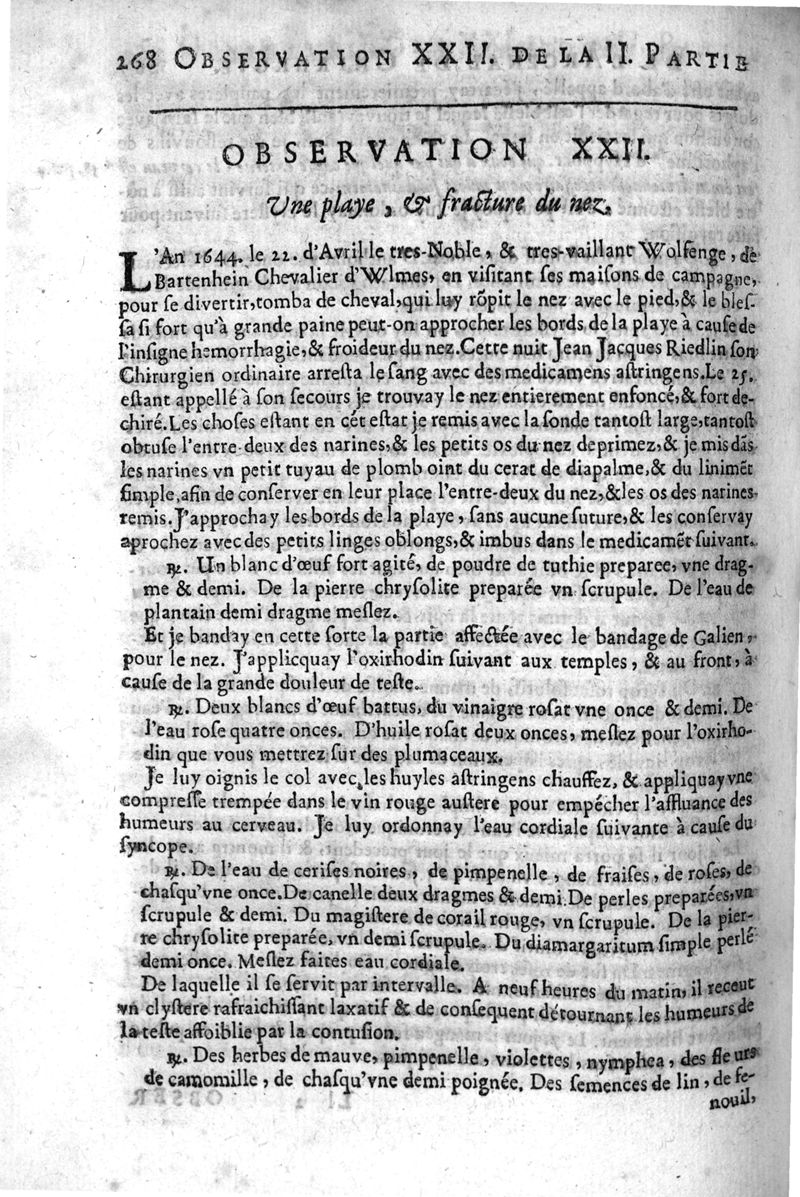 268 OBSERVATION XXII. DE LA II. PARTIE
OBSERVATION XXII.
Vne playe, & fracture du nez.
L'An 1644. le 22. d'Avril le tres-Noble, & tres-vaillant Wolfenge, de
Bartenhein Chevalier d'Wlmes, en visitant ses maisons de campagne,
pour se divertir, tomba de cheval, qui luy rõpit le nez avec le pied, & le bles-
sa si fort qu'à grande paine peut-on approcher les bords de la playe à cause de
l'insigne hemorrhagie, & froideur du nez. Cette nuit Jean Jacques Riedlin son
Chirurgien ordinaire arresta le sang avec des medicamens astringens. Le 25.
estant appellé à son secours je trouvay le nez entierement enfoncé, & fort de-
chiré. Les choses estant en cét estat je remis avec la sonde tantost large, tantost
obtuse l'entre-deux des narines, & les petits os du nez deprimez, & je mis dãs
les narines vn petit tuyau de plomb oint du cerat de diapalme, & du linimẽt
simple, afin de conserver en leur place l'entre-deux du nez, & les os des narines
remis. J'approchay les bords de la playe, sans aucune suture, & les conservay
aprochez avec des petits linges oblongs, & imbus dans le medicamẽt suivant.
℞. Un blanc d'œuf fort agité, de poudre de tuthie preparee, vne drag-
me & demi. De la pierre chrysolite preparée vn scrupule. De l'eau de
plantain demi dragme meslez.
Et je banday en cette sorte la partie affectée avec le bandage de Galien,
pour le nez. J'applicquay l'oxirhodin suivant aux temples, & au front, à
cause de la grande douleur de teste.
℞. Deux blancs d'œuf battus, du vinaigre rosat vne once & demi. De
l'eau rose quatre onces. D'huile rosat deux onces, meslez pour l'oxirho-
din que vous mettrez sur des plumaceaux.
Je luy oignis le col avec les huyles astringens chauffez, & appliquay vne
compresse trempée dans le vin rouge austere pour empécher l'affluance des
humeurs au cerveau. Je luy ordonnay l'eau cordiale suivante à cause du
syncope.
℞. De l'eau de cerises noires, de pimpenelle, de fraises, de roses, de
chasqu'vne once. De canelle deux dragmes & demi. De perles preparées, vn
scrupule & demi. Du magistere de corail rouge, vn scrupule. De la pier-
re chrysolite preparée, vn demi scrupule. Du diamargaritum simple perlé
demi once. Meslez faites eau cordiale.
De laquelle il se servit par intervalle. A neuf heures du matin, il receut
vn clystere rafraichissant laxatif & de consequent détournant les humeurs de
la teste affoiblie par la contusion.
℞. Des herbes de mauve, pimpenelle, violettes, nymphea, des fleurs
de camomille, de chasqu'vne demi poignée. Des semences de lin, de fe-
nouil,